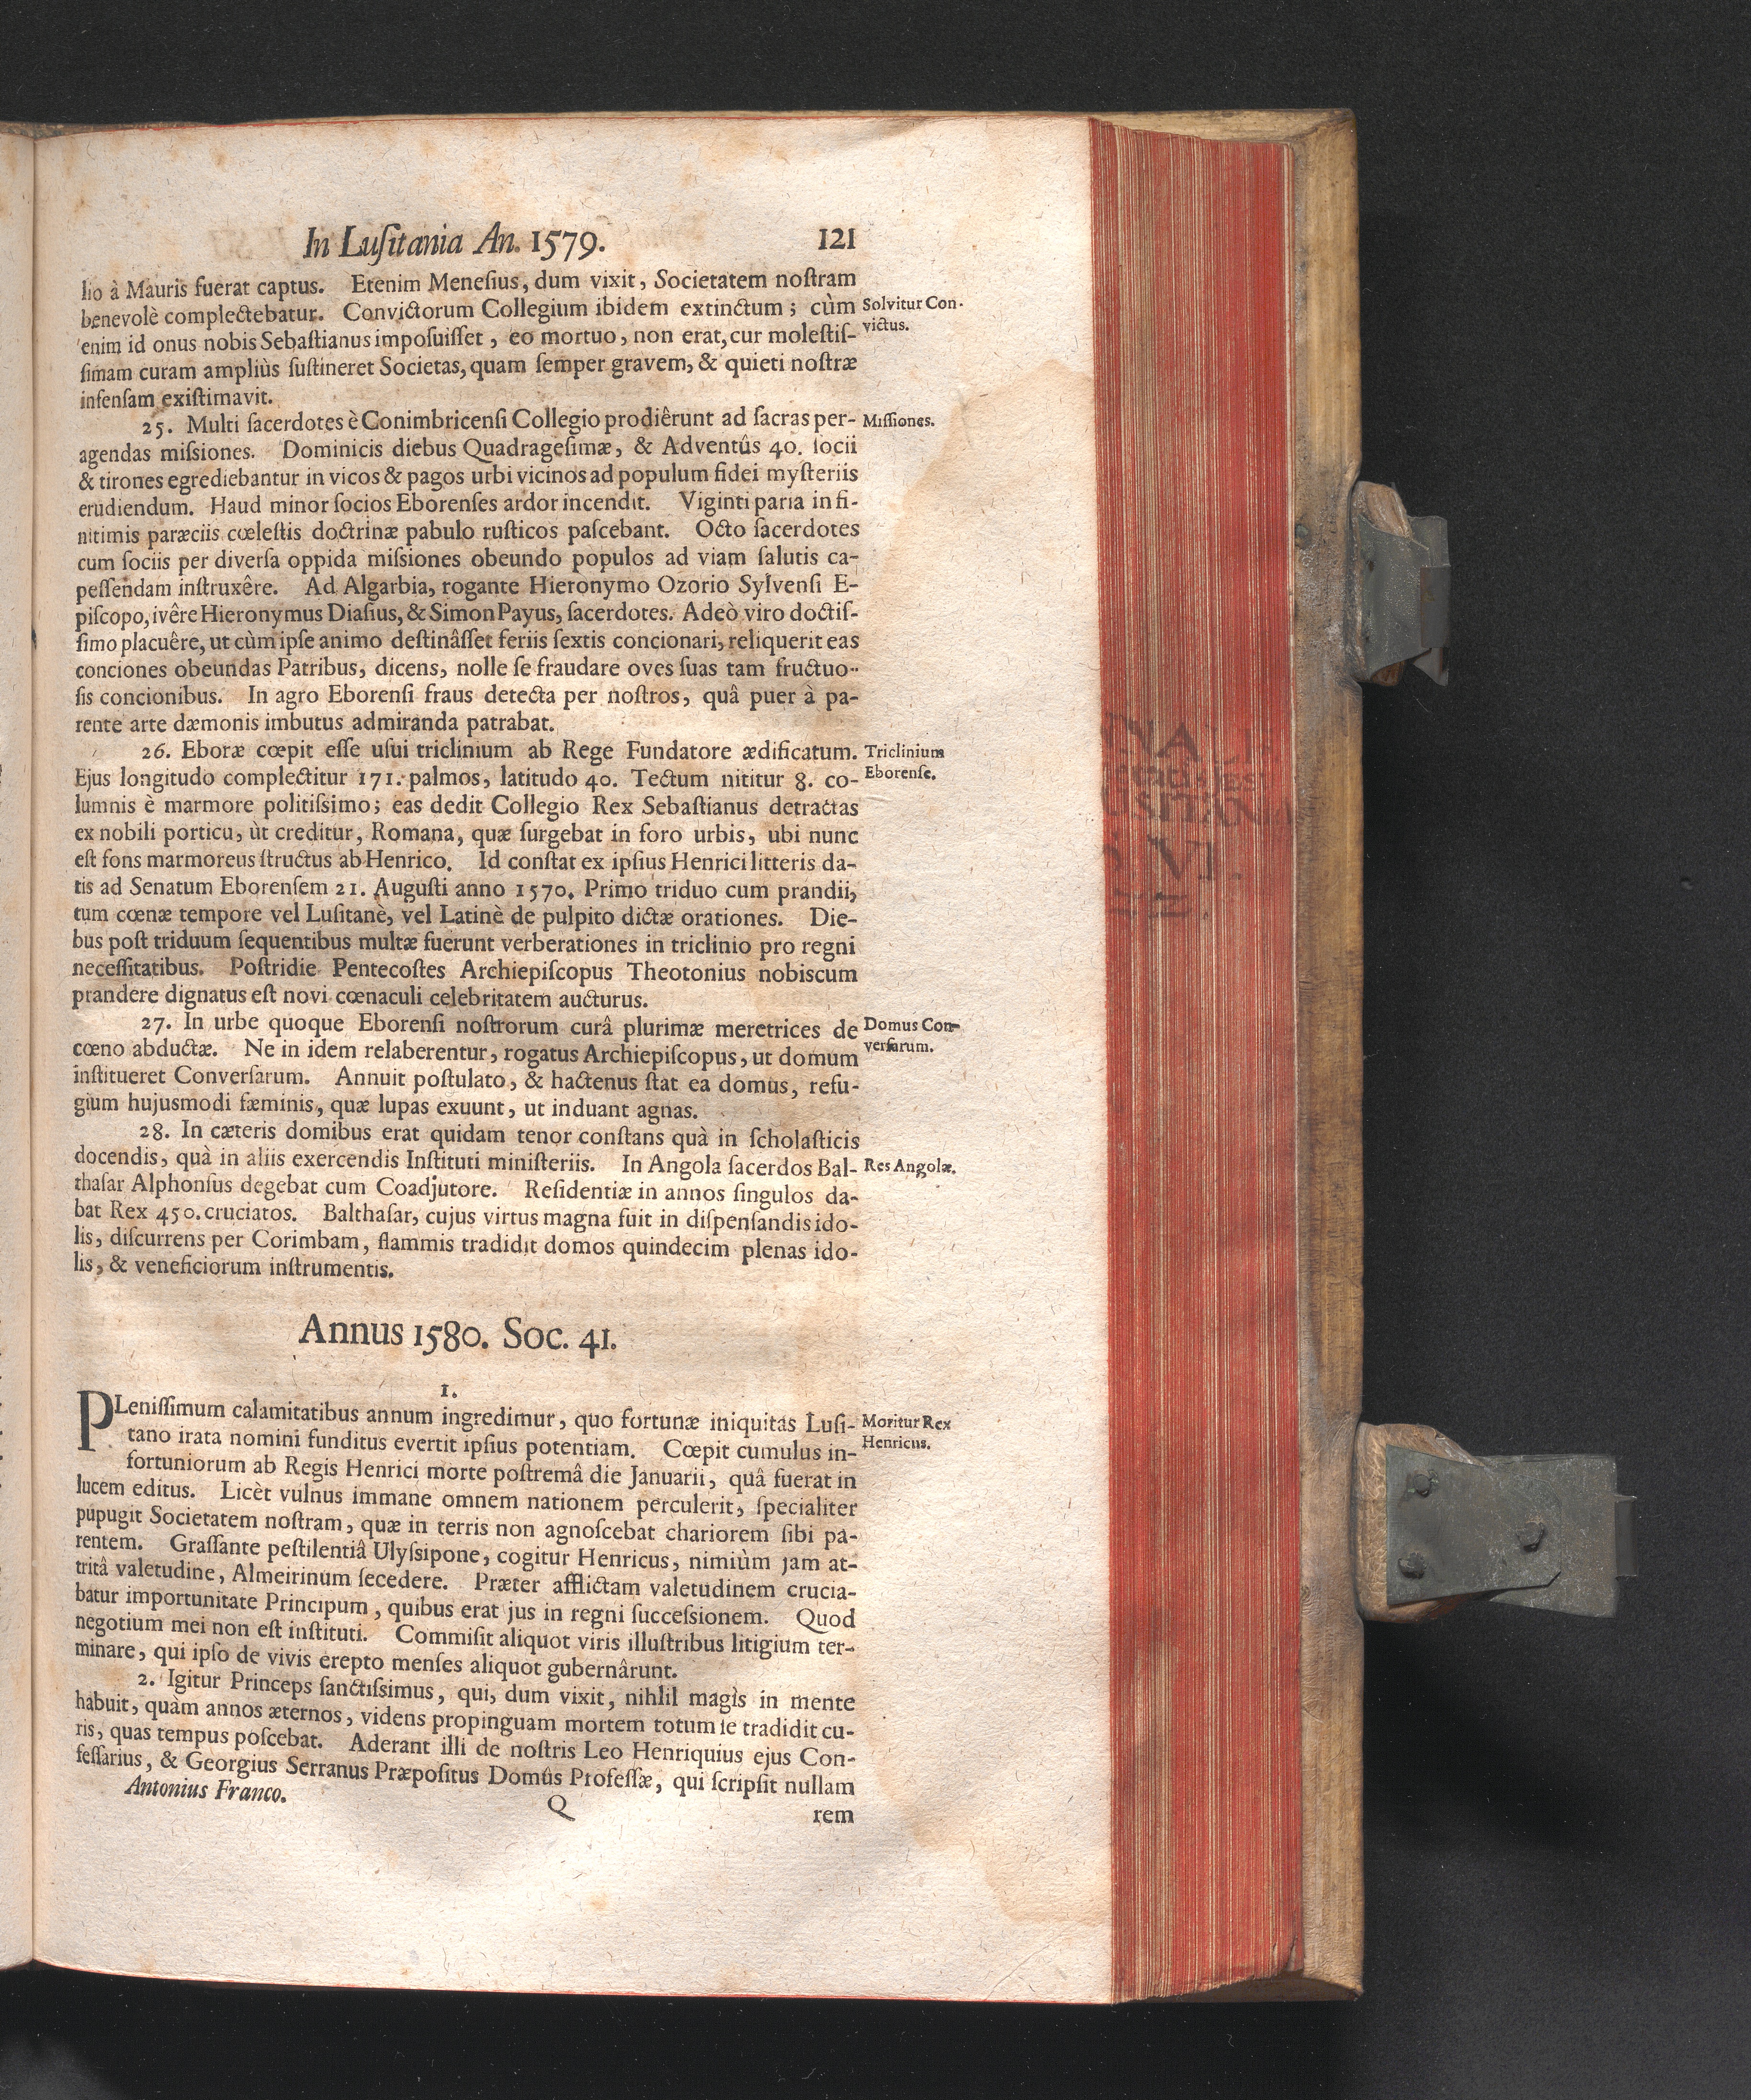 In Luſitania An. 1579. 121
lio à Mauris fuerat captus. Etenim Meneſius, dum vixit, Societatem noſtram
benevolè complectebatur. Convictorum Collegium ibidem extinctum; cùm
Solvitur Con-
victus.
enim id onus nobis Sebaſtianus impoſuiſſet, eo mortuo, non erat, cur moleſtiſ-
ſimam curam ampliùs ſuſtineret Societas, quam ſemper gravem, & quieti noſtræ
infenſam exiſtimavit.
25. Multi ſacerdotes è Conimbricenſi Collegio prodiêrunt ad ſacras per-
Miſſiones.
agendas miſsiones. Dominicis diebus Quadrageſimæ, & Adventûs 40. ſocii
& tirones egrediebantur in vicos & pagos urbi vicinos ad populum fidei myſteriis
erudiendum. Haud minor ſocios Eborenſes ardor incendit. Viginti paria in fi-
nitimis paræciis cœleſtis doctrinæ pabulo ruſticos paſcebant. Octo ſacerdotes
cum ſociis per diverſa oppida miſsiones obeundo populos ad viam ſalutis ca-
peſſendam inſtruxêre. Ad Algarbia, rogante Hieronymo Ozorio Sylvenſi E-
piſcopo, ivêre Hieronymus Diaſius, & Simon Payus, ſacerdotes. Adeò viro doctiſ-
ſimo placuêre, ut cùm ipſe animo deſtinâſſet feriis ſextis concionari, reliquerit eas
conciones obeundas Patribus, dicens, nolle ſe fraudare oves ſuas tam fructuo-
ſis concionibus. In agro Eborenſi fraus detecta per noſtros, quâ puer à pa-
rente arte dæmonis imbutus admiranda patrabat.
26. Eboræ cœpit eſſe uſui triclinium ab Rege Fundatore ædificatum.
Triclinium
Eborenſe.
Ejus longitudo complectitur 171. palmos, latitudo 40. Tectum nititur 8. co-
lumnis è marmore politiſsimo; eas dedit Collegio Rex Sebaſtianus detractas
ex nobili porticu, ùt creditur, Romana, quæ ſurgebat in foro urbis, ubi nunc
eſt fons marmoreus ſtructus ab Henrico. Id conſtat ex ipſius Henrici litteris da-
tis ad Senatum Eborenſem 21. Auguſti anno 1570. Primo triduo cum prandii,
tum cœnæ tempore vel Luſitanè, vel Latinè de pulpito dictæ orationes. Die-
bus poſt triduum ſequentibus multæ fuerunt verberationes in triclinio pro regni
neceſſitatibus. Poſtridie Pentecoſtes Archiepiſcopus Theotonius nobiscum
prandere dignatus eſt novi cœnaculi celebritatem aucturus.
27. In urbe quoque Eborenſi noſtrorum curâ plurimæ meretrices de
Domus Con-
verſarum.
cœno abductæ. Ne in idem relaberentur, rogatus Archiepiſcopus, ut domum
inſtitueret Converſarum. Annuit poſtulato, & hactenus ſtat ea domus, refu-
gium hujusmodi fæminis, quæ lupas exuunt, ut induant agnas.
28. In cæteris domibus erat quidam tenor conſtans quà in ſcholaſticis
docendis, quà in aliis exercendis Inſtituti miniſteriis. In Angola ſacerdos Bal-
Res Angolæ.
thaſar Alphonſus degebat cum Coadjutore. Reſidentiæ in annos ſingulos da-
bat Rex 450. cruciatos. Balthaſar, cujus virtus magna fuit in diſpenſandis ido-
lis, diſcurrens per Corimbam, flammis tradidit domos quindecim plenas ido-
lis, & veneficiorum inſtrumentis.
Annus 1580. Soc. 41.
1.
PLeniſſimum calamitatibus annum ingredimur, quo fortunæ iniquitas Luſi-
Moritur Rex
Henricus.
tano irata nomini funditus evertit ipſius potentiam. Cœpit cumulus in-
fortuniorum ab Regis Henrici morte poſtremâ die Januarii, quâ fuerat in
lucem editus. Licèt vulnus immane omnem nationem perculerit, ſpecialiter
pupugit Societatem noſtram, quæ in terris non agnoſcebat chariorem ſibi pa-
rentem. Graſſante peſtilentiâ Ulyſsipone, cogitur Henricus, nimiùm jam at-
tritâ valetudine, Almeirinum ſecedere. Præter afflictam valetudinem crucia-
batur importunitate Principum, quibus erat jus in regni ſucceſsionem. Quod
negotium mei non eſt inſtituti. Commiſit aliquot viris illuſtribus litigium ter-
minare, qui ipſo de vivis erepto menſes aliquot gubernârunt.
2. Igitur Princeps ſanctiſsimus, qui, dum vixit, nihlil magìs in mente
habuit, quàm annos æternos, videns propinguam mortem totum ſe tradidit cu-
ris, quas tempus poſcebat. Aderant illi de noſtris Leo Henriquius ejus Con-
feſſarius, & Georgius Serranus Præpoſitus Domûs Profeſſæ, qui ſcripſit nullam
Antonius Franco. Q rem